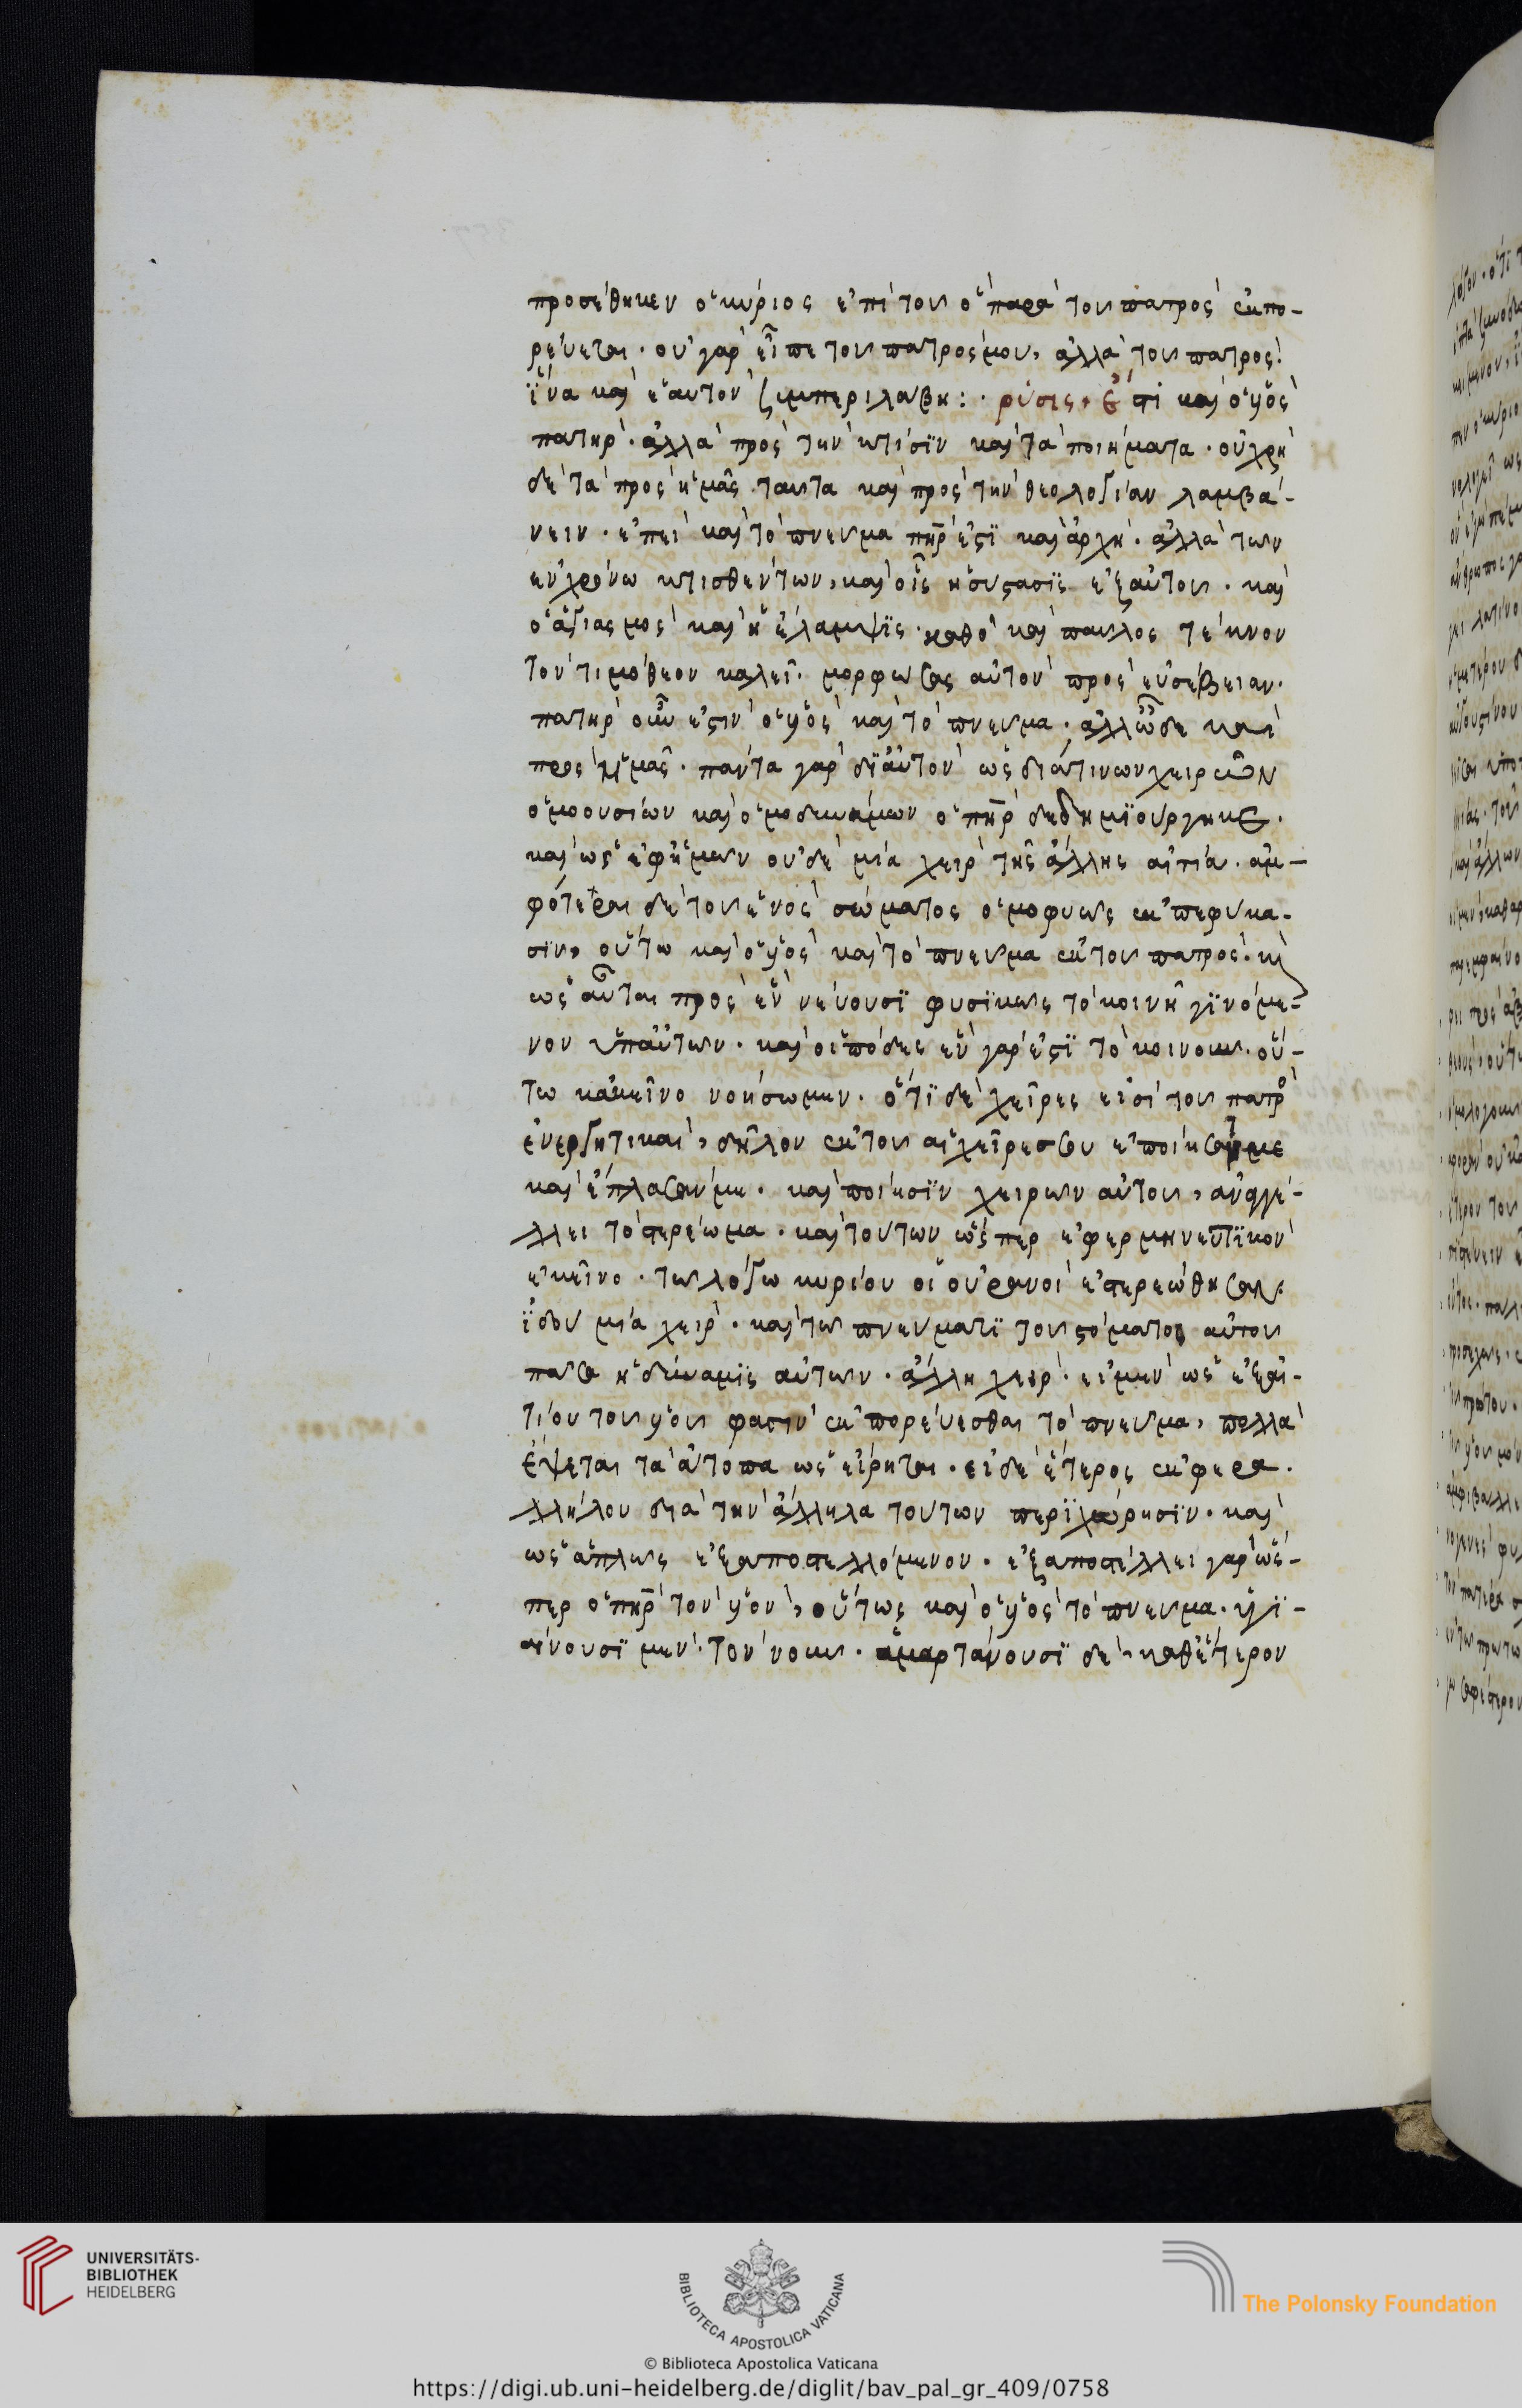 προσέθηκεν ὁ κύριος ἐπὶ τοῦ ὁ παρὰ τοῦ πατρὸς ἐκπο-
ρεύεται · οὐ γὰρ εἶπε τοῦ πατρός μου, ἀλλὰ τοῦ πατρὸς·
ἵνα καὶ ἑαυτὸν συμπεριλάβη : · ῥύσις · ἔστι καὶ ὁ υἱὸς
πατήρ · ἀλλὰ πρὸς τὴν κτίσιν καὶ τὰ ποιήματα · οὐ χρὴ
δὲ τὰ πρὸς ἡμᾶς ταῦτα καὶ πρὸς τὴν θεολογίαν λαμβά-
νειν · ἐπεὶ καὶ τὸ πνεῦμα πηρ ἐστὶ καὶ ἀρχή · ἀλλὰ τῶν
ἐν χρόνω κτισθέντων, καὶ οἷς ἡ σύστασις ἐξ αὐτοῦ · καὶ
ὁ ἁγιασμὸς καὶ ἡ ἔλαμψις · καθὸ καὶ παῦλος τέκνον
τὸν τιμόθεον καλεῖ · μορφώσας αὐτὸν πρὸς εὐσέβειαν ·
πατὴρ οὖν ἐστιν ὁ υἱὸς καὶ τὸ πνεῦμα · ἄλλως δὲ καὶ
πρὸς ἡμᾶς · πάντα γὰρ δι αὐτὸν ὡς διά τινων χειρῶν
ὁμοουσίων καὶ ὁμοδυνάμων ὁ πηρ δεδημιούργηκε ·
καὶ ὡς ἐφ ἡμῶν οὐδὲ μία χεὶρ τῆς ἄλλης αἰτία · ἀμ-
φότεραι δὲ τοῦ ἑνὸς σώματος ὁμοφυῶς ἐκπεφύκα-
σιν, οὕτω καὶ ὁ υἱὸς καὶ τὸ πνεῦμα ἐκ τοῦ πατρός · κὶ
ὡς αὗται πρὸς ἓν νεύουσι φυσικῶς τὸ κοινῆ γινόμε-
νον ὑπ αὐτῶν · καὶ οἱ πόδες ἓν γάρ ἐστι τὸ κοινοῦν · οὕ-
τω κἀκεῖνο νοήσωμεν · ὅτι δὲ χεῖρες εἰσὶ τοῦ πατρὸ
ἐνεργητικαί, δῆλον ἐκ τοῦ αἱ χεῖρες σου ἐποίησάν με
καὶ ἔπλασάν με · καὶ ποίησιν χειρῶν αὐτοῦ, ἀναγγέ-
λλει τὸ στερέωμα · καὶ τούτων ὥσπερ ἐφερμηνευτικὸν
ἐκεῖνο · τῶ λόγω κυρίου οἱ οὐρανοὶ ἐστερεώθησαν ·
ἰδοὺ μία χείρ · καὶ τῶ πνεύματι τοῦ στόματος αὐτοῦ
πᾶσα ἡ δύναμις αὐτῶν · ἄλλη χείρ · εἰ μὲν ὡς ἐξ αἰ-
τίου τοῦ υἱοῦ φασὶν ἐκπορεύεσθαι τὸ πνεῦμα, πολλὰ
ἕψεται τὰ ἄτοπα ὡς εἴρηται · εἰ δὲ ἕτερος ἐκφερα ·
λλήλου διὰ τὴν ἄλληλα τούτων περιχώρησιν · καὶ
ὡς ἁπλῶς ἐξαποστελλόμενον · ἐξαποστέλλει γὰρ ὥσ-
περ ὁ πηρ τὸν υἱὸν, οὕτως καὶ ὁ υἱὸς τὸ πνεῦμα · ὑγι-
αίνουσι μὲν τὸν νοῦν · ἁμαρτάνουσι δὲ · καθ ἕτερον
UNIVERSITÄTS-
BIBLIOTHEK
HEIDELBERG
BIBLIOTECA APOSTOLICA VATICANA
The Polonsky Foundation
© Biblioteca Apostolica Vaticana
https://digi.ub.uni-heidelberg.de/diglit/bav_pal_gr_409/0758